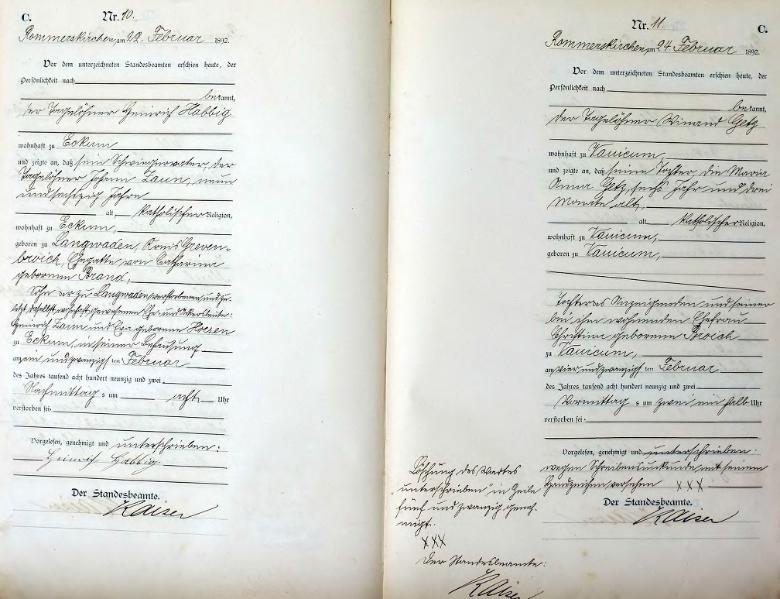 C.
Nr. 10.
Rommerskirchen, am 22. Februar 1892.
Vor dem unterzeichneten Standesbeamten erschien heute, der
Persönlichkeit nach
bekannt,
der Tagelöhner Heinrich Habbig
wohnhaft zu Eckum,
und zeigte an, daß sein Schwiegervater, der
Tagelöhner Johann Zaun, neun
und sechzig Jahre
alt, katholischer Religion,
wohnhaft zu Eckum,
geboren zu Langwaden, Kreis Greven-
broich, Ehegatte von Catharina
geborenen Brand,
Sohn der zu Langwaden verstorbenen und zu-
letzt daselbst wohnhaft gewesenen
Heinrich Zaun und geborenen Hoesen
zu Eckum, in seiner Behausung
am ein und zwanzigsten Februar
des Jahres tausend acht hundert neunzig und zwei
Nachmittags um acht Uhr
verstorben sei.
Vorgelesen, genehmigt und unterschrieben:
Heinrich Habbig
Der Standesbeamte.
Kaiser
Nr. 11.
C.
Rommerskirchen, am 24. Februar 1892.
Vor dem unterzeichneten Standesbeamten erschien heute, der
Persönlichkeit nach
bekannt,
der Tagelöhner Winand Getz
wohnhaft zu Vanicum,
und zeigte an, daß seine Tochter, die Maria
Anna Getz, sechs Jahr und drei
Monate alt,
alt, katholischer Religion,
wohnhaft zu Vanicum,
geboren zu Vanicum,
Tochter des Anzeigenden und seiner
bei ihm wohnenden Ehefrau
Christina geborenen Broich
zu Vanicum,
am vier und zwanzigsten Februar
des Jahres tausend acht hundert neunzig und zwei
Vormittags um zwei ein halb Uhr
verstorben sei.
Vorgelesen, genehmigt und unterschrieben:
wegen Schreibensunkunde mit seinem
Handzeichen versehen XXX
Der Standesbeamte.
Kaiser
Löschung des Wortes
"unterschrieben" in Zeile
fünf und zwanzig geneh-
migt.
XXX
Der Standesbeamte:
Kaiser